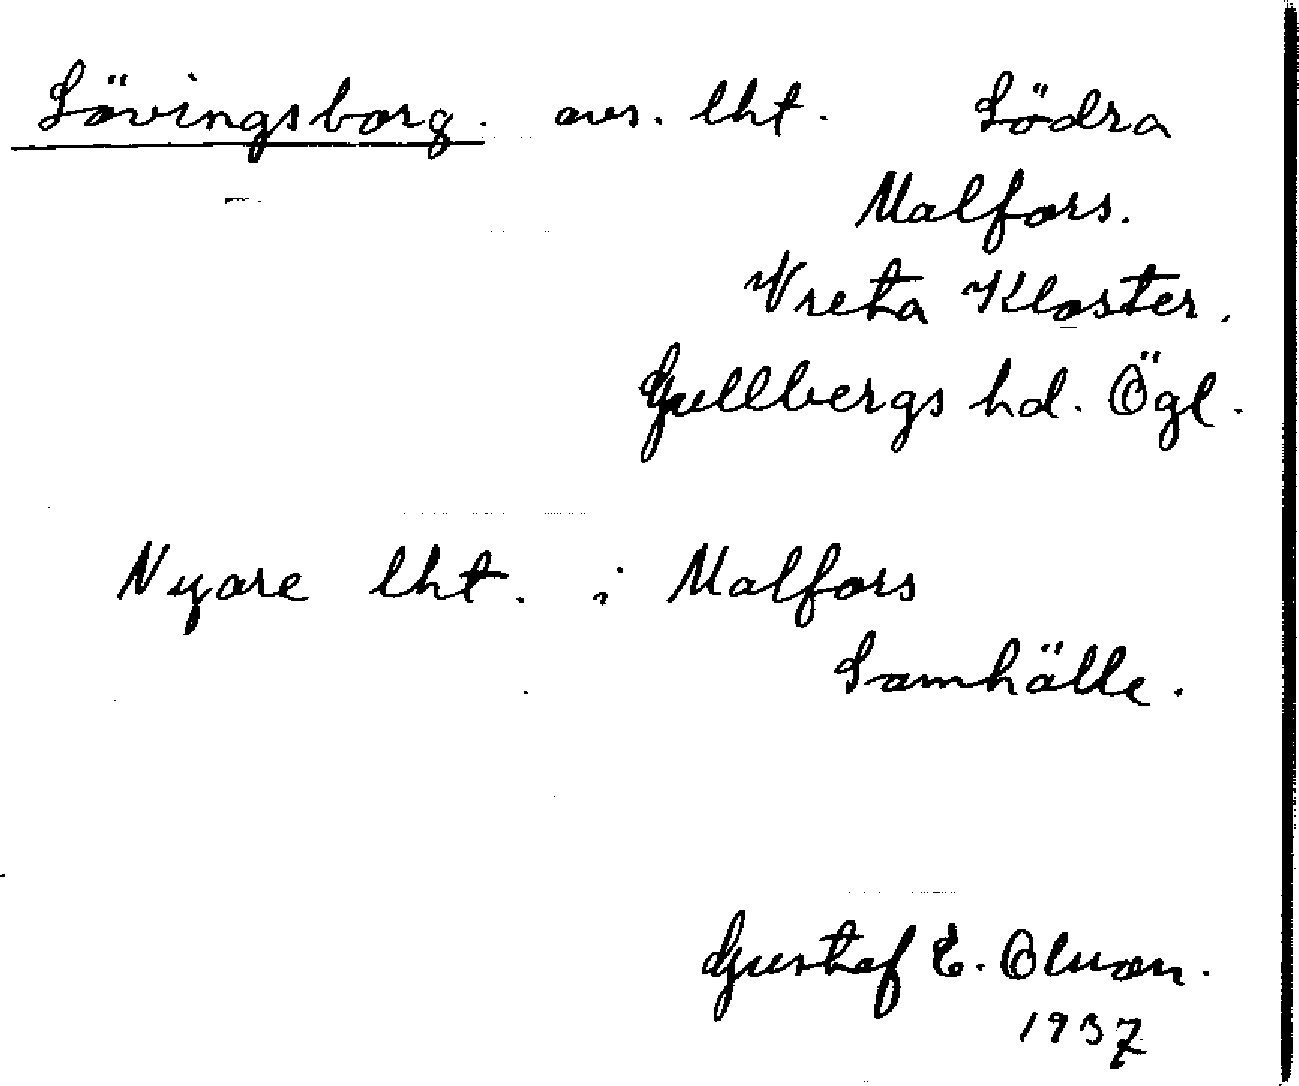 Sövingsborg. avs. lht. Södra
Malfors.
Vreta Kloster.
Gullbergs hd. Ögl.
Nyare lht. i Malfors
Samhälle.
Gustaf E. Olsson.
1937